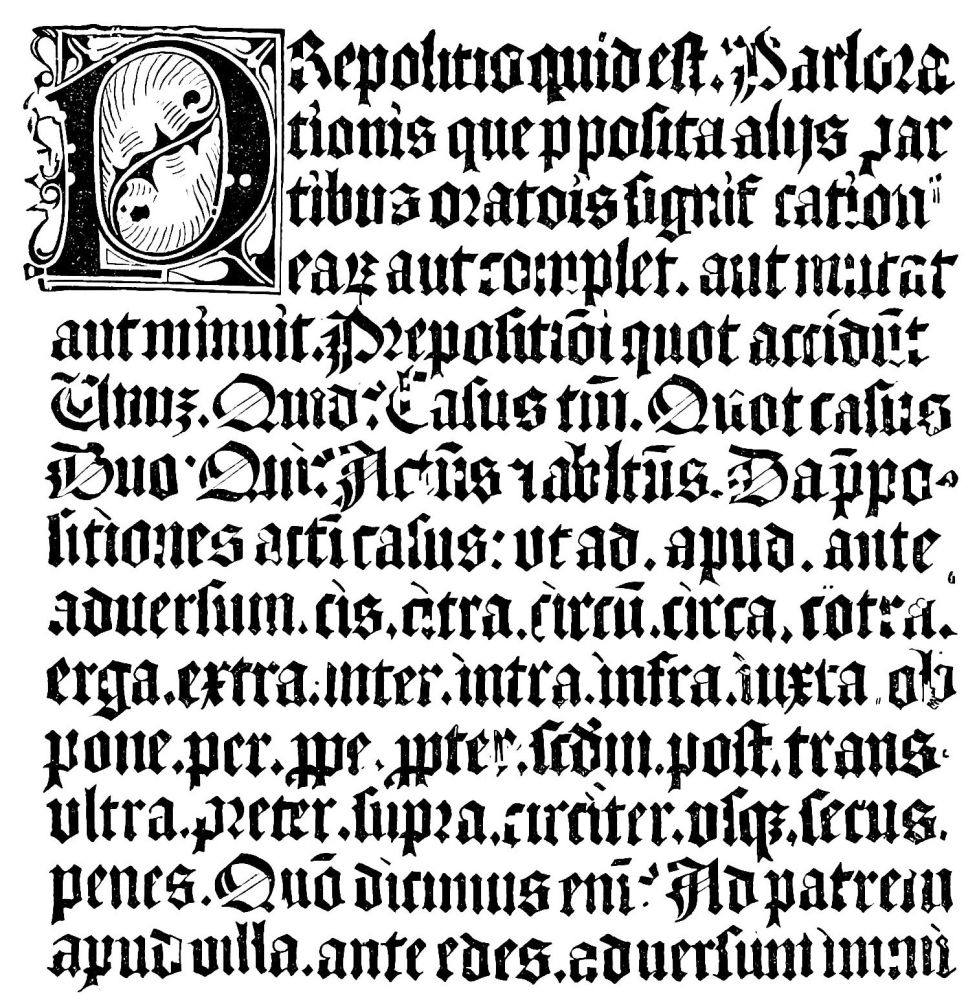 PRepositio quid est? Pars ora
tionis que p̱posita alijs par
tibus oratōis signifcationē
eaꝝ aut complet. aut mutat
aut minuit. Prepositiōi quot accidūt
Unuꝫ. Quid? Casus tm̄. Quot casus
Duo. Qui? Actūs ⁊ abltūs. Da p̄po-
sitiones acti casus: vt ad. apud. ante
aduersum. cis. citra. circū. circa. cōtra.
erga. extra. inter. intra. infra. iuxta. ob
pone. per. ꝓpe. ꝓpter. scd̄m. post. trans.
vltra. preter. supra. circiter. vsqꝫ. secus.
penes. Quō dicimus eni? Ad patrem
apud villa. ante edes. aduersum inimi